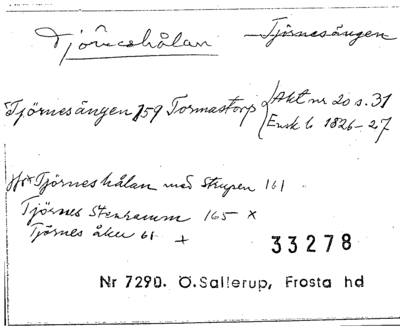 Tjörneshålan – Tjörnesängen
Tjörnesängen 159 Tormastorp Akt nr 20 s. 31
Ensk b 1826-27
Tjörneshålan med Strupen 161
Tjörnes Stenramm 165 x
Tjörnes åker 61 +
33278
Nr 7290. Ö.Sallerup, Frosta hd